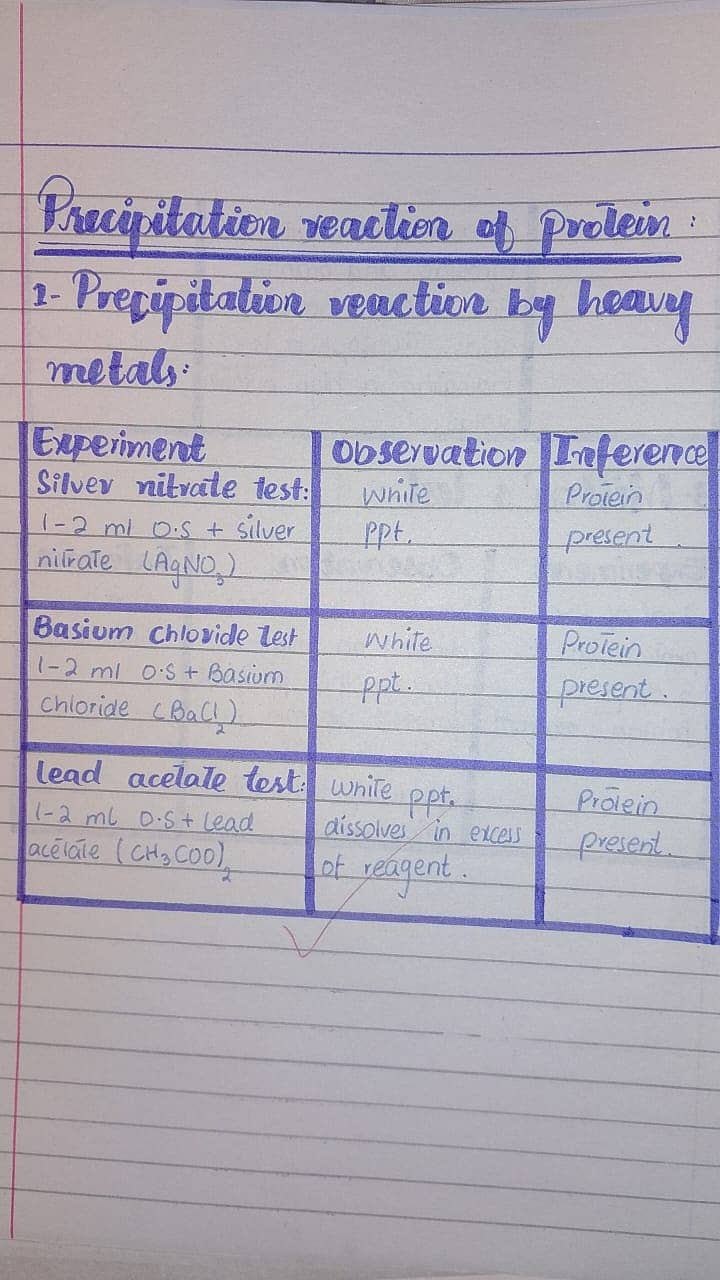 Precipitation reaction of protein :
1- Precipitation reaction by heavy
metals:
Experiment
Observation
Inference
Silver nitrate test:
1-2 ml O.S + silver
nitrate (AgNO3)
white
ppt.
Protein
present.
Basium chloride test
1-2 ml O.S + Basium
chloride (BaCl2)
white
ppt.
Protein
present.
lead acetate test:
1-2 ml O.S + lead
acetate (CH3COO)2
white ppt.
dissolves in excess
of reagent.
Protein
present.